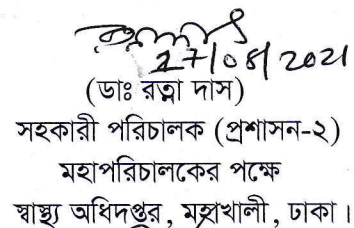 27/08/2021
(ডাঃ রত্না দাস)
সহকারী পরিচালক (প্রশাসন-২)
মহাপরিচালকের পক্ষে
স্বাস্থ্য অধিদপ্তর, মহাখালী, ঢাকা।